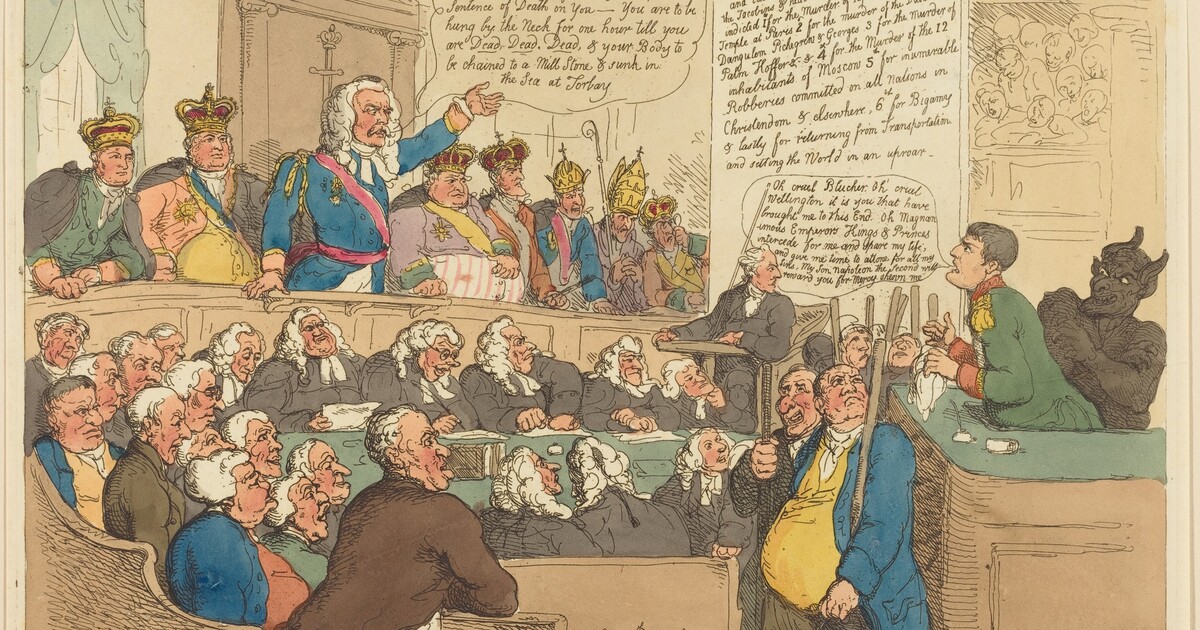 Sentence of Death on You — You are to be
hung by the Neck for one hour till you
are Dead, Dead, Dead, & your Body to
be chained to a Mill Stone & sunk in
the Sea at Torbay
the Jacobins &
indicted for the Murder of
Temple at Paris 2d for the murder of the
Dangulem Pichegrew & Georges 3 for the Murder of
Palm Hoffer &c &c 4th for the Murder of the 12
inhabitants of Moscow 5th for inumerable
Robberies committed on all Nations in
Christendom & elsewhere, 6th for Bigamy
& lastly for returning from Transportation
and setting the World in an uproar —
Oh cruel Blucher. Oh! cruel
Wellington it is you that have
brought me to this End. Oh Magnan
imous Emperors Kings & Princes
intercede for me and spare my life,
and give me time to attone for all my
Sins, My Son Napoleon the Second will
reward you for Mercy shewn me